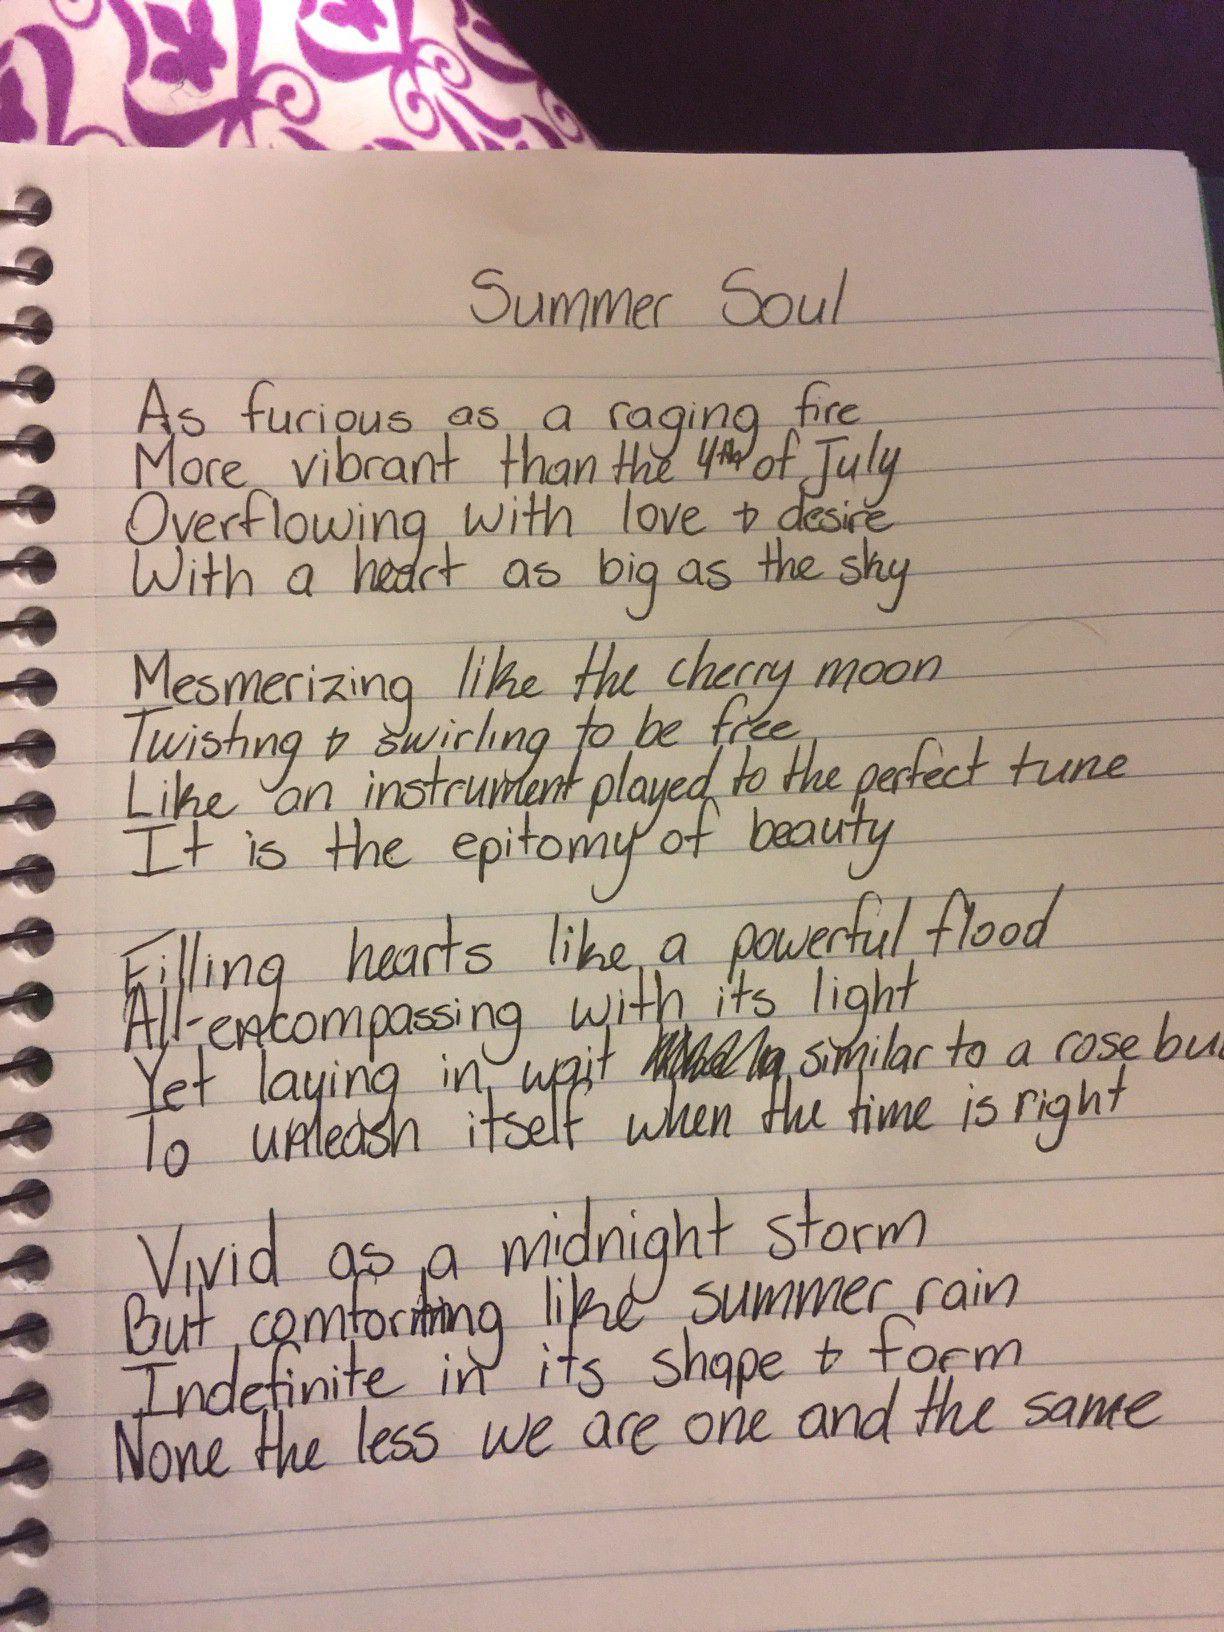 Summer Soul
As furious as a raging fire
More vibrant than the 4th of July
Overflowing with love & desire
With a heart as big as the sky
Mesmerizing like the cherry moon
Twisting & swirling to be free
Like an instrument played to the perfect tune
It is the epitomy of beauty
Filling hearts like a powerful flood
All-encompassing with its light
Yet laying in wait similar to a rose bu
To unleash itself when the time is right
Vivid as a midnight storm
But comforting like summer rain
Indefinite in its shape & form
None the less we are one and the same